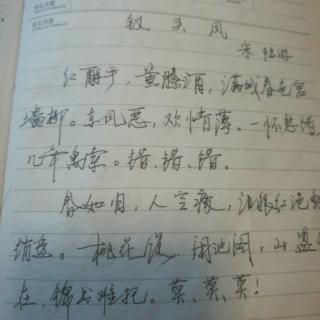 钗头凤
宋 陆游
红酥手，黄藤酒，满城春色宫
墙柳。东风恶，欢情薄。一怀愁绪，
几年离索。错、错、错。
春如旧，人空瘦，泪痕红浥
绡透。桃花落，闲池阁，山盟
在，锦书难托。莫、莫、莫！